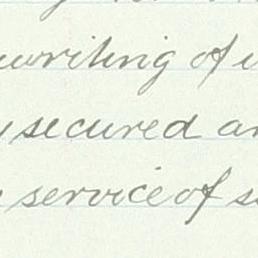 writing of
secured an
service of s